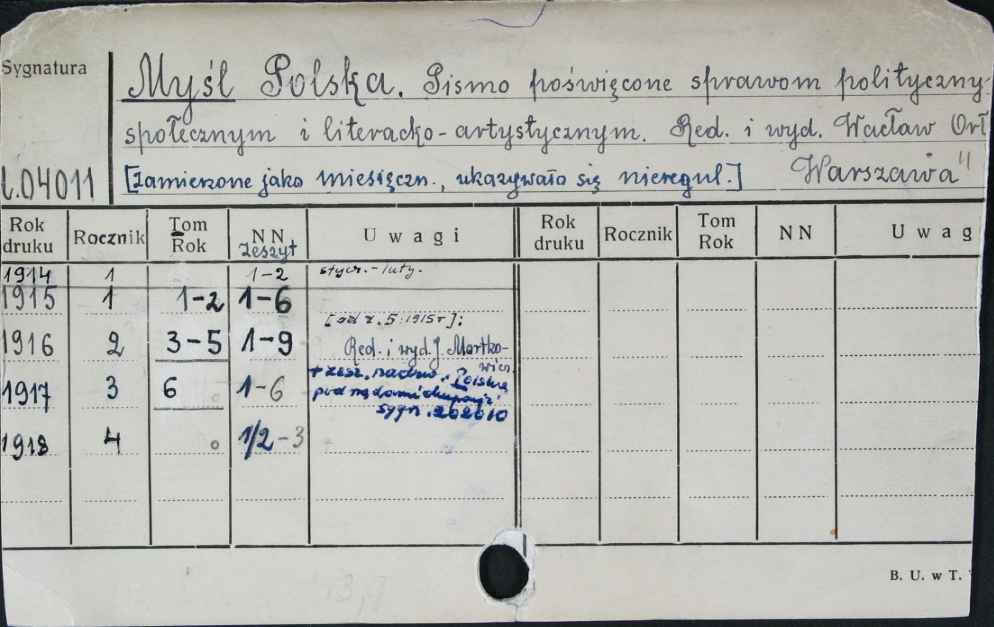 Sygnatura
Myśl Polska. Pismo poświęcone sprawom polityczny-
społecznym i literacko-artystycznym. Red. i wyd. Wacław Orł
04011 [zamierzone jako miesięczn., ukazywało się niereguł.] Warszawa
Rok druku Rocznik Tom Rok NN zeszyt Uwagi Rok druku Rocznik Tom Rok NN Uwag
1914 1 1-2 stycz.-luty.
1915 1 1-2 1-6
[od z. 5 1915 r]:
1916 2 3-5 1-9 Red. i wyd. J. Mortko-
wicz.
+ zesz. nadzw. "Polska
1917 3 6 1-6 pod rządami okupacji"
sygn. 262610
1918 4 1/2-3
B. U. w T.